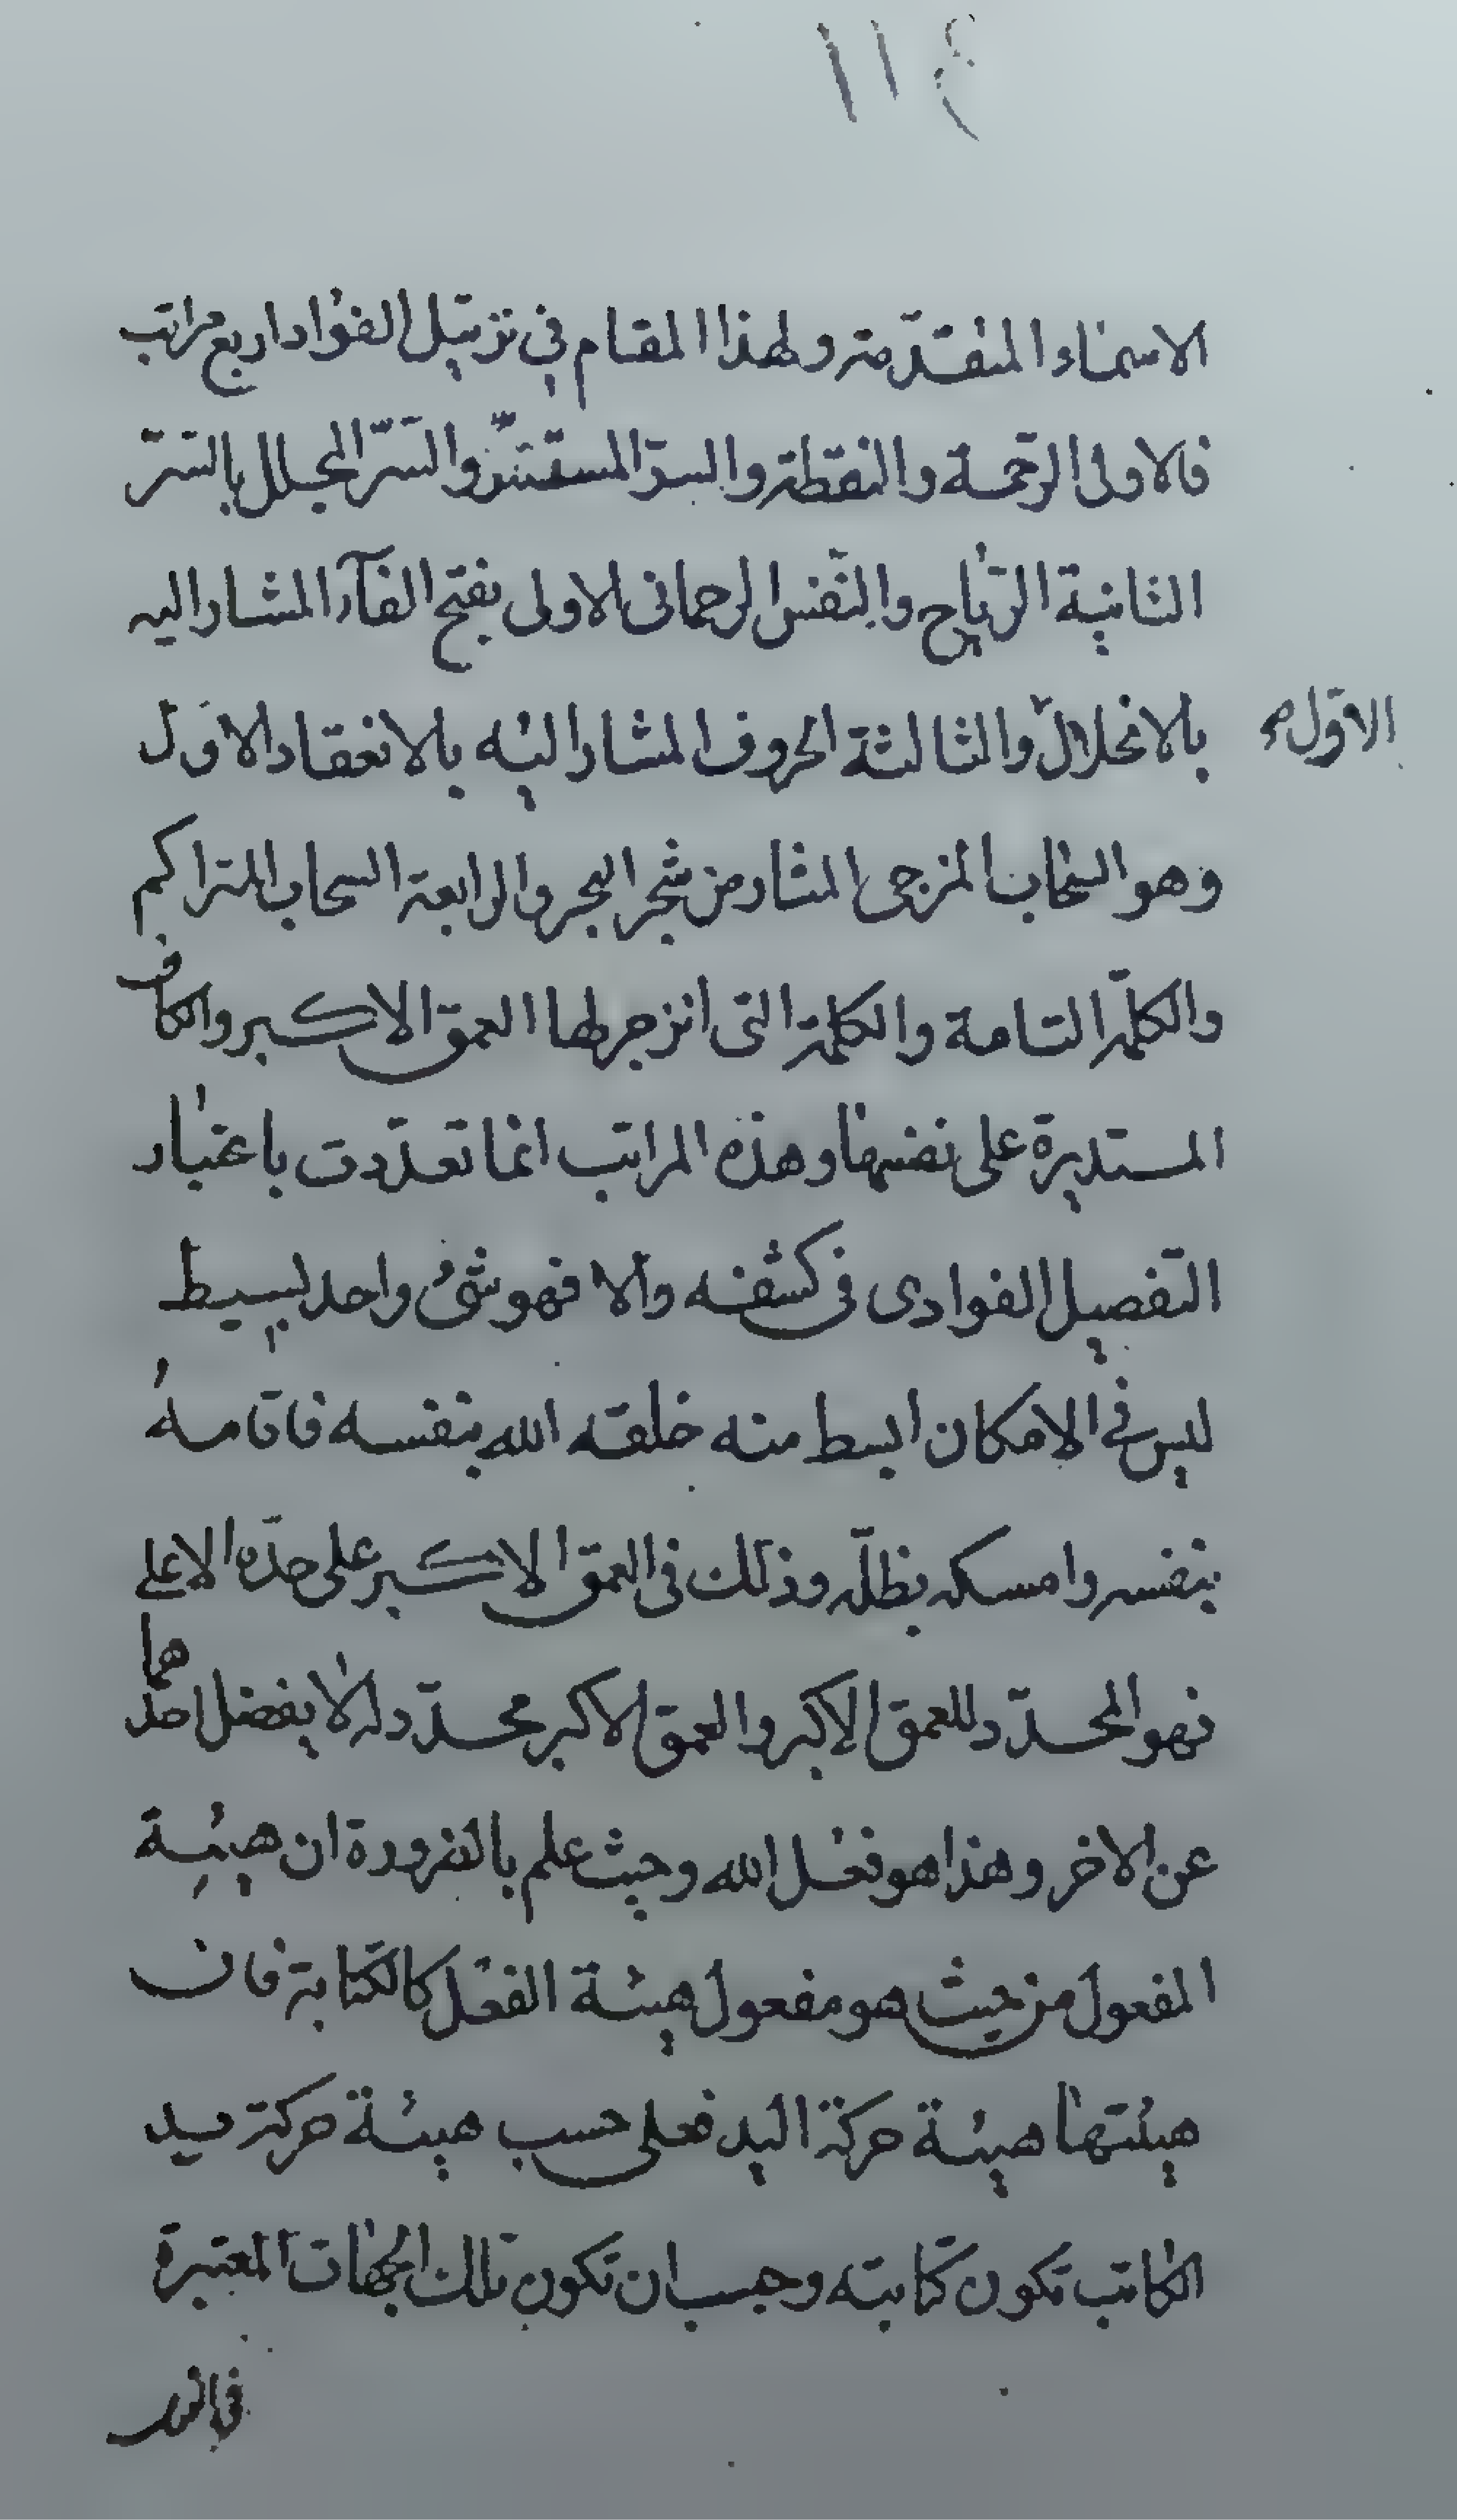 ١١٤
الاسماء المتقدّمة ولهذا المقام في ترتيل الفؤاد اربع مراتب
فالاولى الرحمة والنقطة والسرّ المستتر والسّرّ المجلل بالسّرّ
الثانية الرّياح والنّفس الرحمانى الاولى بفتح الفآء المشار اليه
بالانحلال والثالثة الحروف المشار اليه بالانعقاد الاوّل
الاوّل
وهو السّحاب المزجى المثار من شجر البحر والرابعة السحاب المتراكم
والكلمة التامة والكلمة التى انزجر لها العمق الاكبر والكاف
المستديرة على نفسها وهذه المراتب انما تعدّدت باعتبار
التفصيل الفوادى فى كشفه والا فهو شئ واحد بسيط
ليس في الامكان ابسط منه خلقه الله بنفسه فاقامه
بنفسه وامسكه بظلّه وذلك فى العمق الاكبر على حدّه الاعلى
فهو المحدّد للعمق الاكبر والعمق الاكبر محدّد له لا يفضل احدهما
عن الاخر وهذا هو فعل الله وحيث علم بالضرورة ان هيئة
المفعول من حيث هو مفعول هيئة الفعل كالكتابة فان
هيئتها هيئة حركة اليد فعلى حسب هيئة حركة يد
الكاتب تكون كتابته وجب ان تكون تلك الجهات المعتبرة